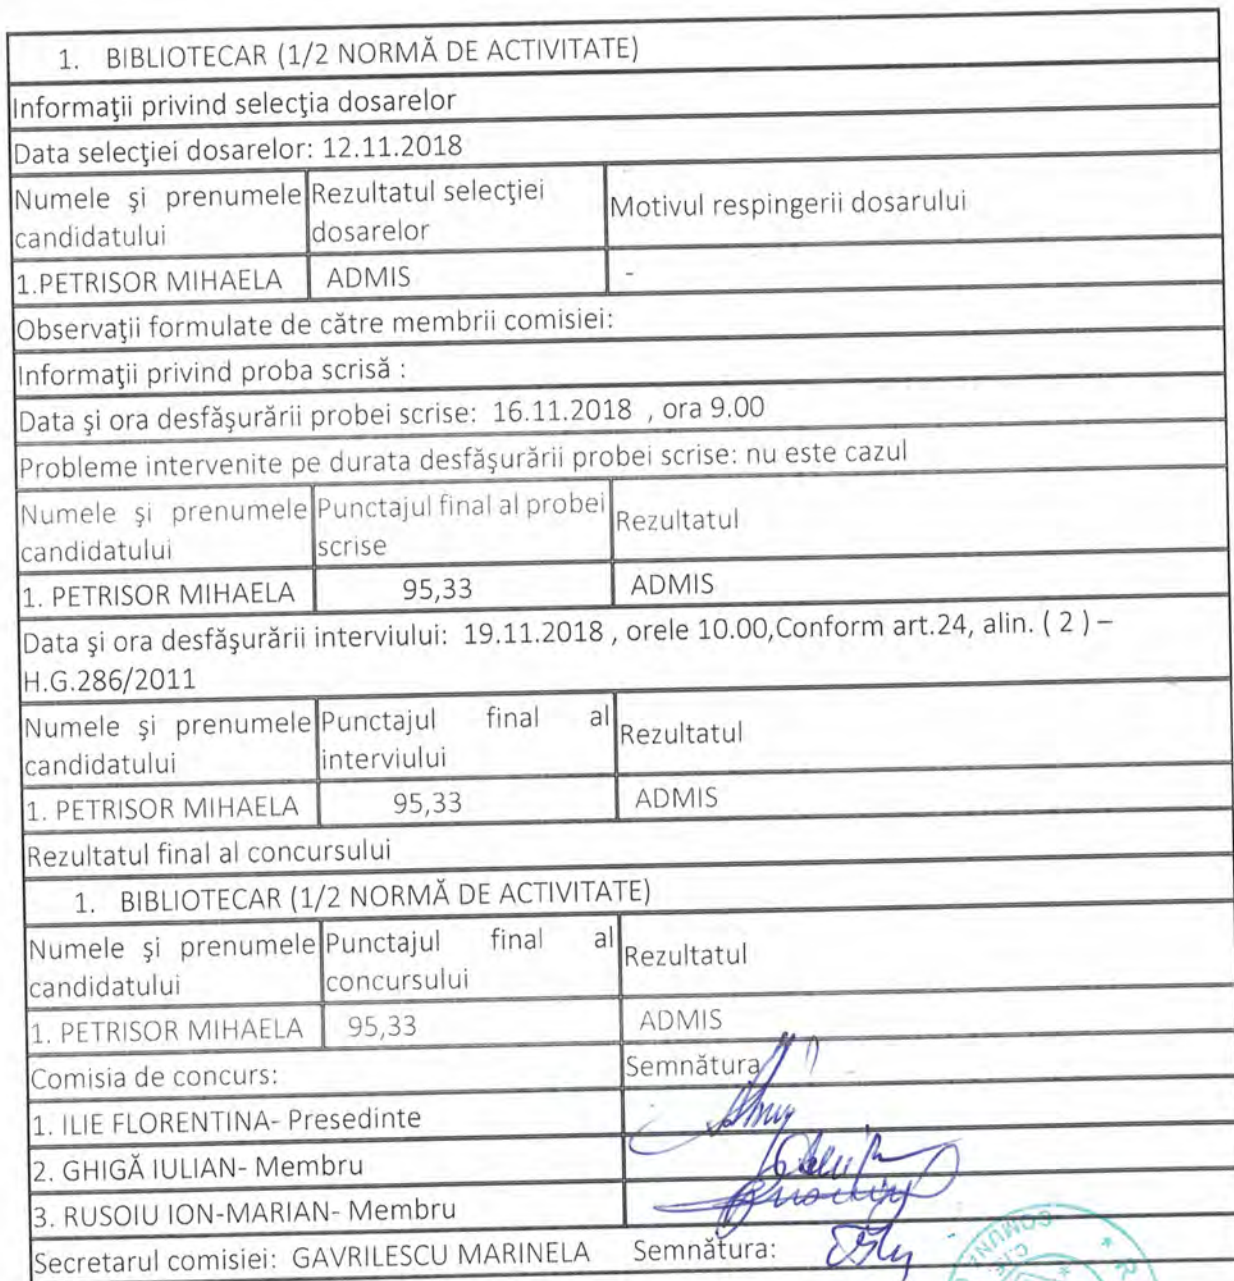 1. BIBLIOTECAR (1/2 NORMĂ DE ACTIVITATE)
Informaţii privind selecţia dosarelor
Data selecţiei dosarelor: 12.11.2018
Numele şi prenumele candidatului Rezultatul selecţiei dosarelor Motivul respingerii dosarului
1.PETRISOR MIHAELA ADMIS -
Observaţii formulate de către membrii comisiei:
Informaţii privind proba scrisă :
Data şi ora desfăşurării probei scrise: 16.11.2018 , ora 9.00
Probleme intervenite pe durata desfăşurării probei scrise: nu este cazul
Numele şi prenumele candidatului Punctajul final al probei scrise Rezultatul
1. PETRISOR MIHAELA 95,33 ADMIS
Data şi ora desfăşurării interviului: 19.11.2018 , orele 10.00,Conform art.24, alin. ( 2 ) –
H.G.286/2011
Numele şi prenumele candidatului Punctajul final al interviului Rezultatul
1. PETRISOR MIHAELA 95,33 ADMIS
Rezultatul final al concursului
1. BIBLIOTECAR (1/2 NORMĂ DE ACTIVITATE)
Numele şi prenumele candidatului Punctajul final al concursului Rezultatul
1. PETRISOR MIHAELA 95,33 ADMIS
Comisia de concurs: Semnătura
1. ILIE FLORENTINA- Presedinte
2. GHIGĂ IULIAN- Membru
3. RUSOIU ION-MARIAN- Membru
Secretarul comisiei: GAVRILESCU MARINELA Semnătura: